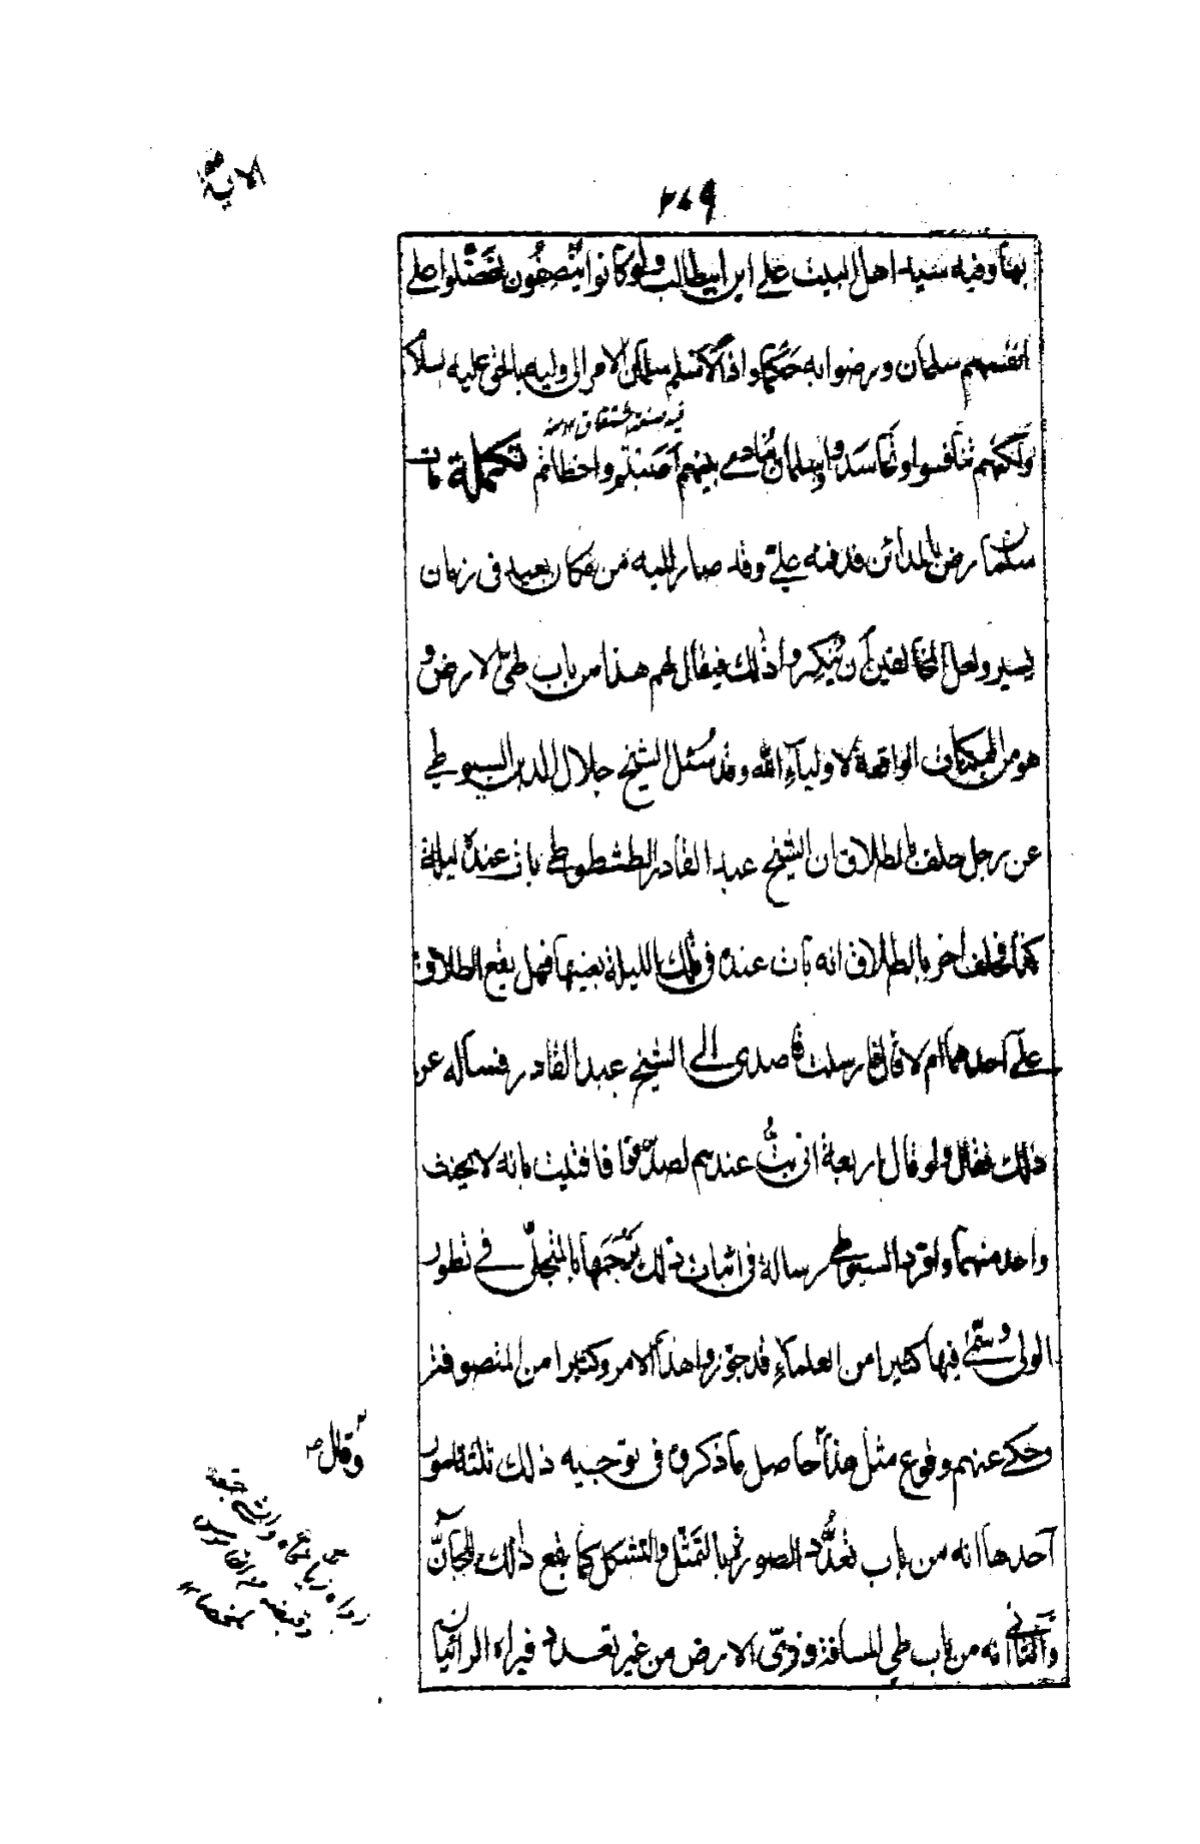 الاية
٢٠٩
بها وفيه سيد اهل البيت علي ابن ابيطالب ولو كانوا ينصفون لفضلوا على
انفسهم سلمان ورضوا به حكما واذا لاسلم سلمان الامر الى وليه بالحق عليه سلام
فيه صنعة اشتقاق منه
ولكنهم تنافسوا وتحاسدوا وسلمان ينادي بينهم اصبتم واخطاتم تكملة مات
سلمان رض بالمدائن فدفنه علي وقد صار اليه من مكان بعيد في زمان
يسير ولعل المخالفين ان ينكروا ذلك فيقال لهم هذا من باب طي الارض و
هو من الممكنات الواقعة لاولياء الله وقد سئل الشيخ جلال الدين السيوطي
عن رجل حلف بالطلاق ان الشيخ عبد القادر الطشطوطي بات عنده ليلة
كذا فحلف اخر بالطلاق انه بات عنده في تلك الليلة بعينها فهل يقع الطلاق
على احدهما ام لا قال فارسلت قاصدي الى الشيخ عبد القادر فسأله عن
ذلك فقال ولو قال اربعة اني بت عندهم لصدقوا فافتيت بانه لا يحنث
واحد منهما ولقد السيوطي رسالة في اثبات ذلك ترجمها بالمنجلي في تطور
الولي وسمى فيها كثيرا من العلماء قد جوزوا هذا الامر وكثيرا من المتصوفة
وحكى عنهم وقوع مثل هذا حاصل ما ذكروه في توجيه ذلك ثلثة امور
وقال
احدها انه من باب تعدد الصور بالتمثل والتشكل كما يقع ذلك للجان
والثاني انه من باب طي المسافة وزوى الارض من غير تعدد فيراه الرائيان
زواه زيا
وقبضه